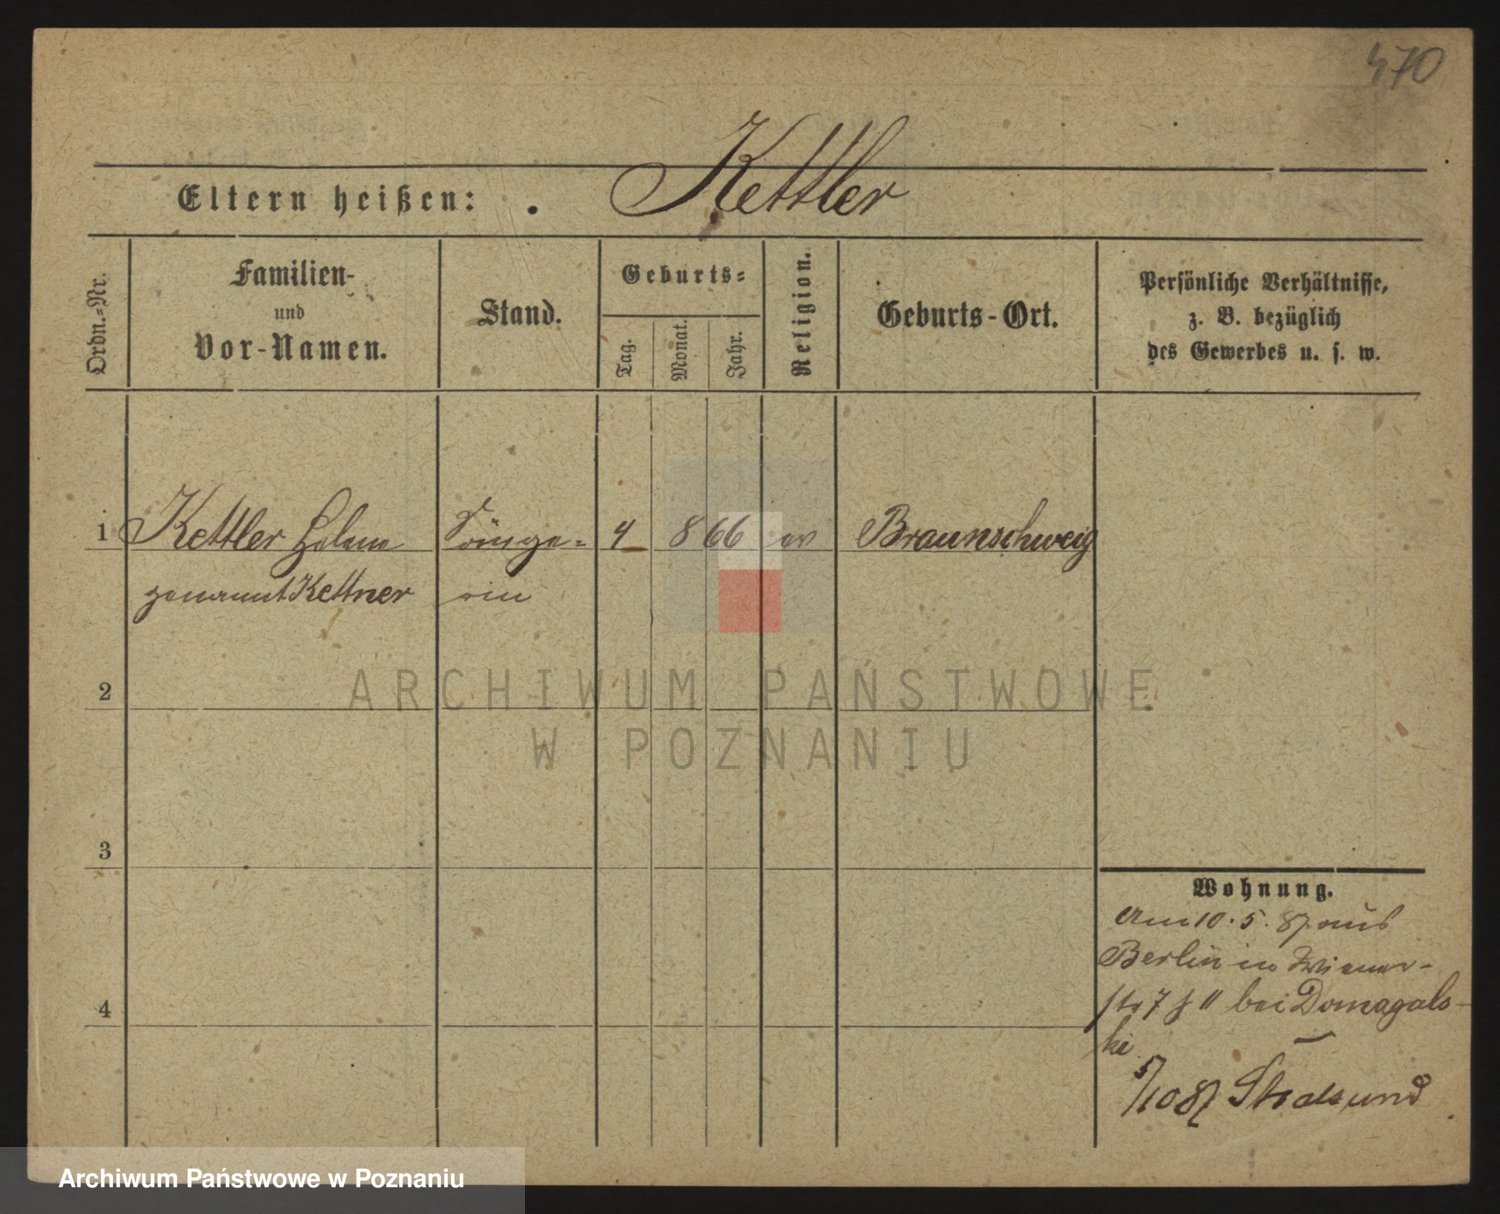 470
Kettler
Eltern heißen:
Ordn.-Nr.
Familien-
und
Vor-Namen.
Stand.
Geburts-
Tag.
Monat.
Jahr.
Religion.
Geburts-Ort.
Persönliche Verhältnisse,
z. B. bezüglich
des Gewerbes u. s. w.
1 Kettler Helene Sänge- 4 8 66 ev Braunschweig
genannt Kettner rin
2
ARCHIWUM PAŃSTWOWE
W POZNANIU
3
Wohnung.
Am 10. 5. 87 aus
Berlin in Wiener-
str 7 II bei Domagals-
4
ki
5/10 87 Stralsund
Archiwum Państwowe w Poznaniu